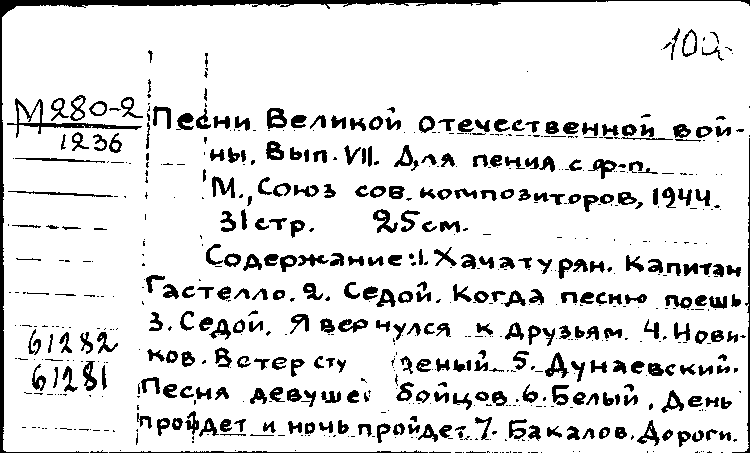 100
М280-2
1236
Песни Великой отечественной вой-
ны. Вып. VII. Для пения с ф-п.
М., Союз сов. композиторов, 1944.
31 стр. 25 см.
Содержание: 1. Хачатурян. Капитан
Гастелло. 2. Седой. Когда песню поешь.
3. Седой. Я вернулся к друзьям. 4. Нови-
61282
ков. Ветер сту 5. Дунаевский.
61281
Песня девуше бойцов. 6. Белый. День
пройдет и ночь пройдет 7. Бакалов. Дороги.